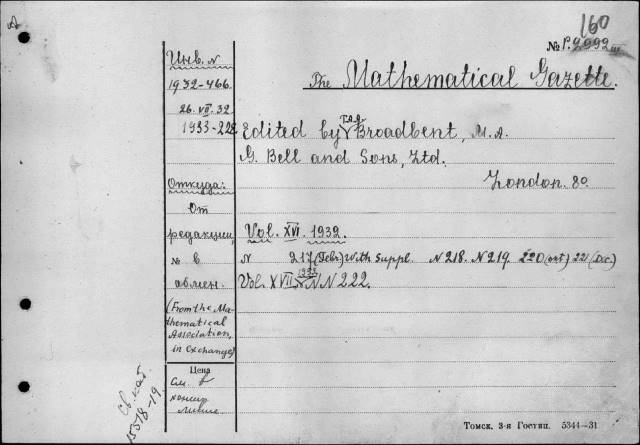 A
160
№ P.2992
Инв. N
1932-466.
26.VII.32
1933-228
The Mathematical Gazette.
Edited by T.A.A. Broadbent, M.A.
G. Bell and Sons, Ltd.
London. 8°.
Откуда:
От
редакции,
в
обмен.
(From the Ma-
thematical
Association,
in exchange)
Vol. XVI. 1932.
N 217 (Febr) With Suppl. N 218. N 219. 220 (oct) 221 (Dec)
Vol. XVII. 1933 N N 222.
Цена
См. в
Св. кат.
15318-19
Томск. 3-я Гостип. 5344—31